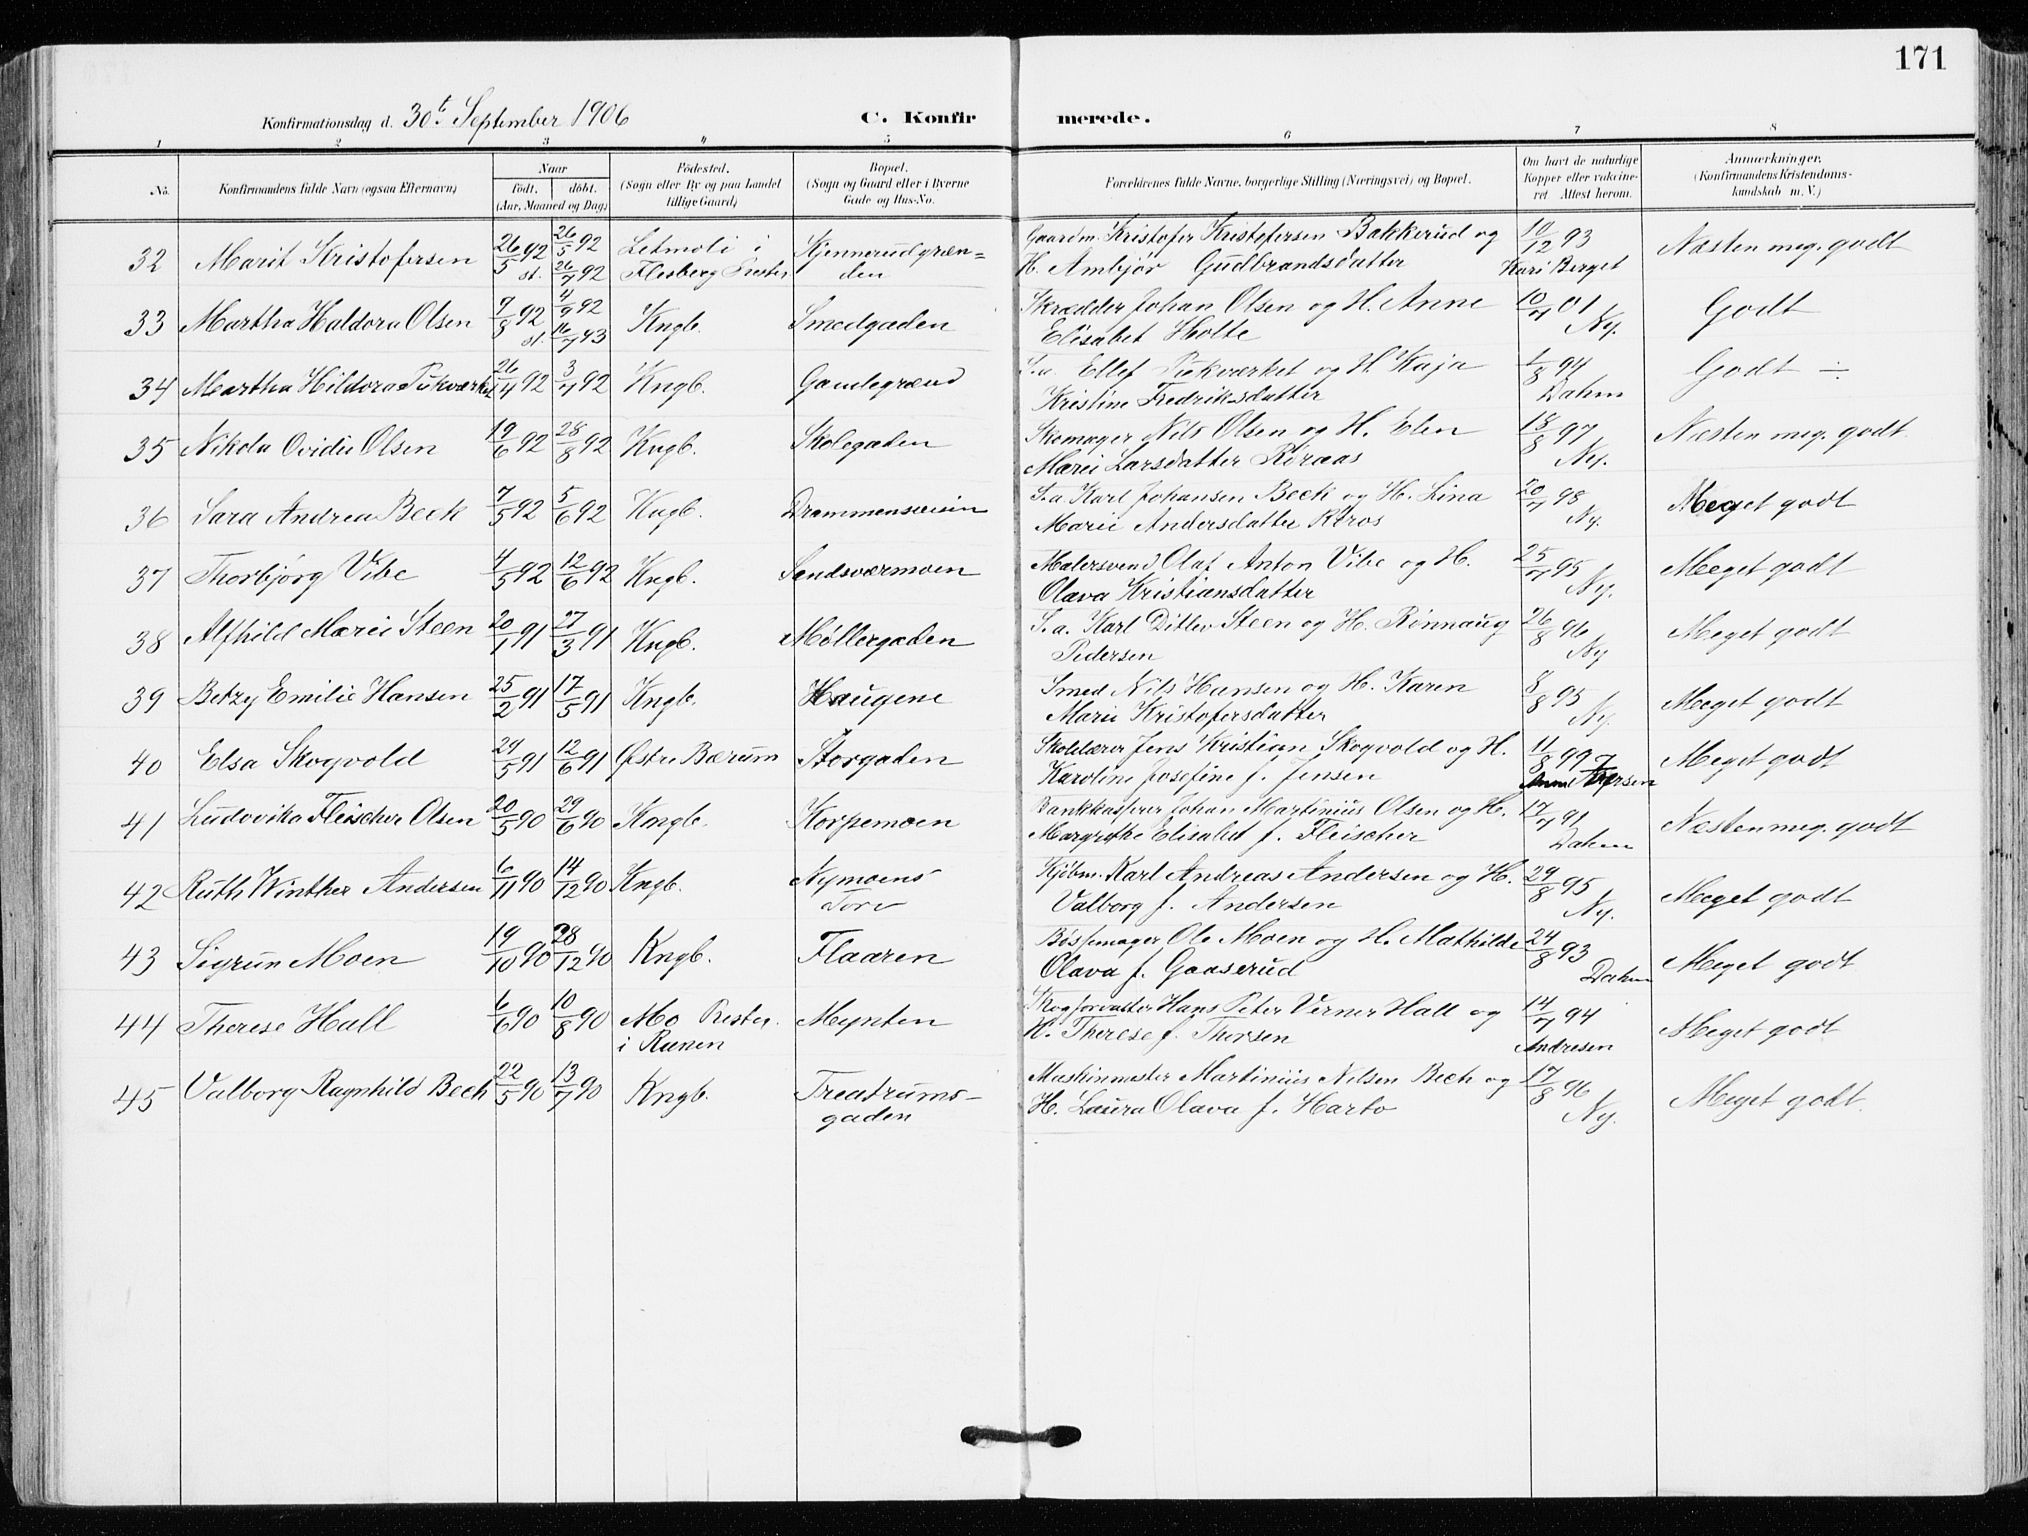 171
Konfirmationsdag d. 30t September 1906 C. Konfirmerede.
1 2 3 4 5 6 7 8
No. Konfirmandens fulde Navn (ogsaa Efternavn) Naar födt. döbt. (Aar, Maaned og Dag) Födested. (Sogn eller By og paa Landet tillige Gaard) Bopæl. (Sogn og Gaard eller i Byerne Gade og Hus-No. Forældrenes fulde Navne, borgerlige Stilling (Næringsvei) og Bopæl. Om havt de naturlige Kopper eller vakcineret Attest herom. Anmærkninger. (Konfirmandens Kristendomskundskab m. V.)
32 Marit Kristofersen 26/5 92 26/5 92 Letmoli i Kjennerudgræn= Gaardm. Kristofer Kristofersen Bakkerud og 10/12 93 Næsten meg. godt
st. 26/7 92 Flesberg Prestg. den H. Ambjør Gudbrandsdatter Kari Berget
33 Martha Haldora Olsen 7/8 92 4/9 92 Kngb. Smedgaden Skrædder Johan Olsen og H. Anne 10/7 01 Godt
st. 16/7 93 Elisabet Holte Ny.
34 Martha Hildora Pukværket 26/4 92 3/7 92 Kngb. Gamlegrænd S.a. Ellef Pukværket og H. Kaja 1/8 94 Godt ÷
Kristine Fredriksdatter Dahm
35 Nikola Ovidie Olsen 19/6 92 28/8 92 Kngb. Skolegaden Skomager Nils Olsen og H. Elen 18/8 97 Næsten meg. godt.
Marie Larsdatter Ny.
36 Sara Andrea Beck 7/5 92 5/6 92 Kngb. Drammensveien S.a Karl Johansen Beck og H. Lina 20/7 98 Meget godt
Marie Andersdatter Ny.
37 Thorbjörg Vibe 4/5 92 12/6 92 Kngb. Sandsværmoen Malersvend Olaf Anton Vibe og H. 25/7 95 Meget godt
Olava Kristiansdatter Ny.
38 Alfhild Marie Steen 20/1 91 27/3 91 Kngb. Møllergaden S.a. Karl Ditlev Steen og H. Rønnaug 26/8 96 Meget godt
Pedersen Ny
39 Betzy Emilie Hansen 25/2 91 17/5 91 Kngb. Haugene Smed Nils Hansen og H. Karen 8/8 95 Meget godt
Marie Kristofersdatter Ny.
40 Elsa Skogvold 29/5 91 12/6 91 Østre Bærum Storgaden Skolelærer Jens Kristian Skogvold og H. 11/8 99 Meget godt
Karoline Josefine f. Jensen
41 Ludovika Fleischer Olsen 20/5 90 29/6 90 Kngb. Korpemoen Bankkasserer Johan Martinius Olsen og H. 17/7 91 Næsten meg. godt
Margrethe Elisabet f. Fleischer Dahm
42 Ruth Winther Andersen 6/11 90 14/12 90 Kngb. Nymoens Kjöbm. Karl Andreas Andersen og H. 29/8 95 Meget godt
Torv Valborg f. Andersen Ny.
43 Sigrun Moen 19/10 90 28/12 90 Kngb. Flaaren Bøssemager Ole Moen og H. Mathilde 24/8 93 Meget godt
Olava f. Gaaserud Dahm
44 Therese Hall 6/6 90 10/8 90 Mo Prestg. Mynten Skogforvalter Hans Peter Verner Hall og 14/7 94 Meget godt
i Ranen H. Therese f. Thorsen Andresen
45 Valborg Ragnhild Bech 22/5 90 13/7 90 Kngb. Treatrums- Maskinmester Martinius Nilsen Bech og 17/8 96 Meget godt.
gaden H. Laura Olava f. Harbo Ny.